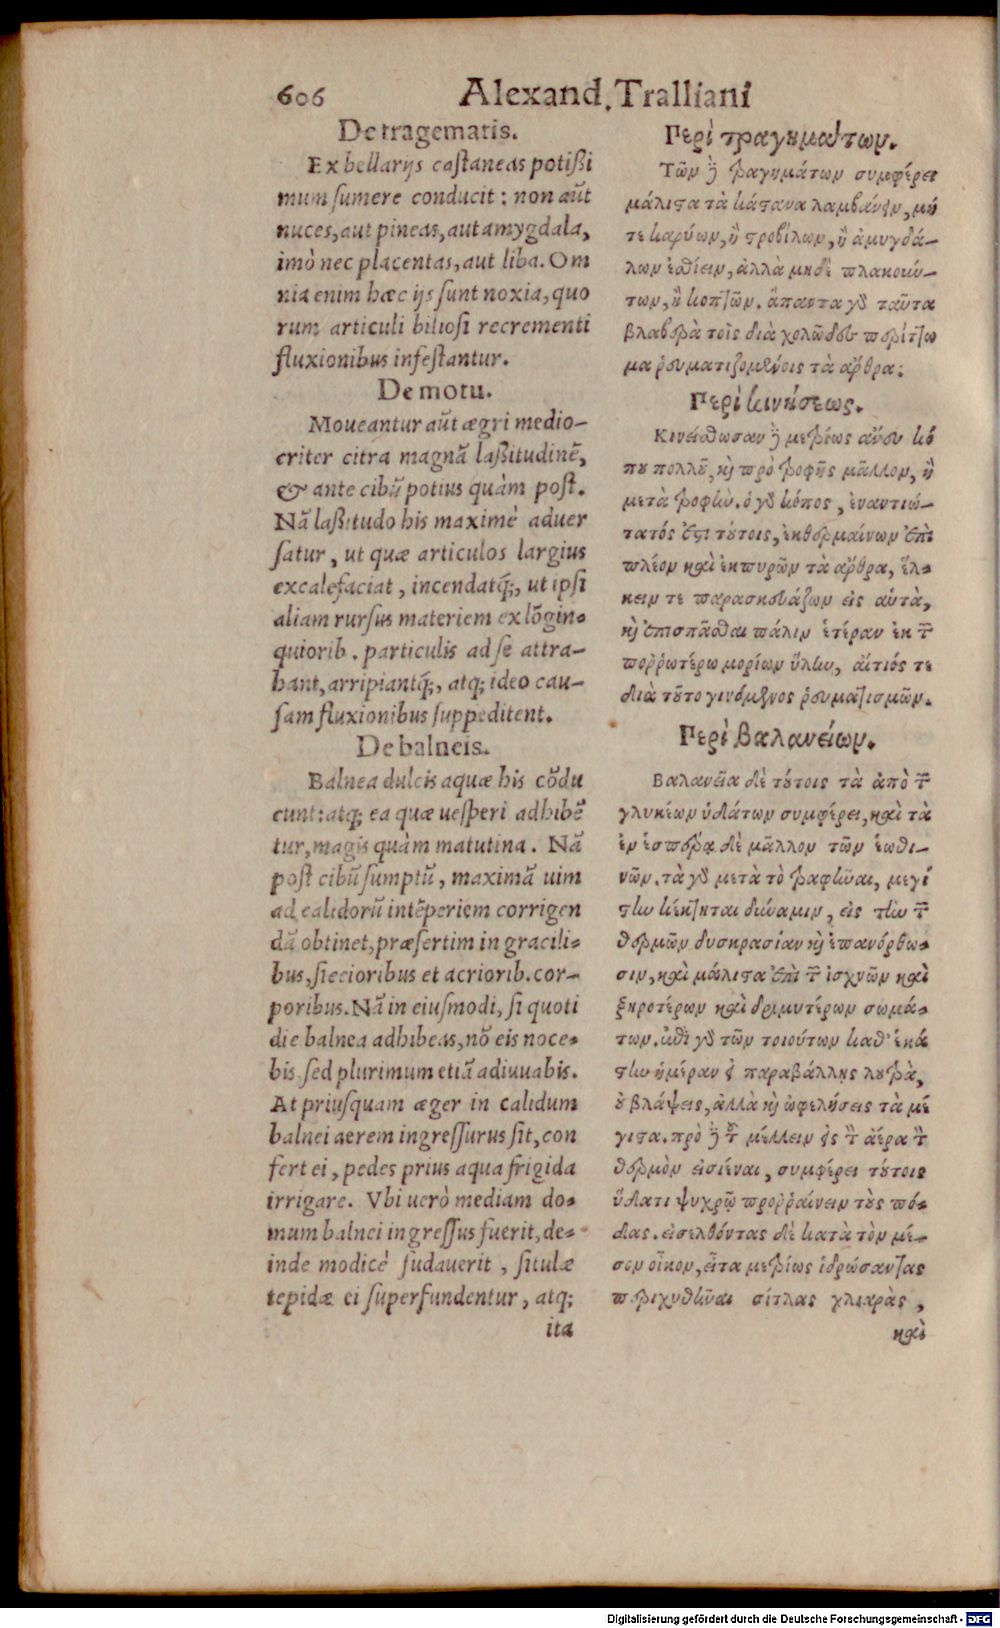 606 Alexand. Tralliani
De tragematis.
Ex bellarijs castaneas potißi
mum sumere conducit: non aūt
nuces, aut pineas, aut amygdala,
imò nec placentas, aut liba. Om
nia enim hæc ijs sunt noxia, quo
rum articuli biliosi recrementi
fluxionibus infestantur.
De motu.
Moueantur aūt ægri medio-
criter citra magnā laßitudinē,
& ante cibū potius quàm post.
Nā laßitudo his maximè aduer
satur, ut quæ articulos largius
excalefaciat, incendatq́;, ut ipsi
aliam rursus materiem ex lōgin-
quiorib. particulis ad se attra-
hant, arripiantq́;, atq; ideo cau-
sam fluxionibus suppeditent.
De balneis.
Balnea dulcis aquæ his cōdu
cunt: atq; ea quæ uesperi adhibē
tur, magis quàm matutina. Nā
post cibū sumptū, maximā uim
ad calidorū intēperiem corrigen
dā obtinet, præsertim in gracili-
bus, siccioribus et acriorib. cor-
poribus. Nā in eiusmodi, si quoti
die balnea adhibeas, nō eis noce-
bis sed plurimum etiā adiuuabis.
At priusquam æger in calidum
balnei aerem ingressurus sit, con
fert ei, pedes prius aqua frigida
irrigare. Vbi uerò mediam do-
mum balnei ingressus fuerit, de-
inde modicè sudauerit, situlæ
tepidæ ei superfundentur, atq;
ita
Περὶ τραγημάτων.
Τῶν ἢ ϯραγημάτων συμφέρει
μάλιςα τὰ κάςανα λαμβάνειν, μή
τε καρύων, ἢ ςροβίλων, ἢ ἀμυγδά-
λων ἐσθίειν, ἀλλὰ μηδὲ πλακούν-
των, ἢ κοπτῶν. ἅπαντα γὸ ταῦτα
βλαβερὰ τοῖς διὰ χολῶδες περίττω
μα ῥευματιζομένοις τὰ ἄρθρα.
Περὶ κινήσεως.
Κινείσθωσαν ἢ μετρίως ἄνευ κό
που πολλοῦ, κὴ πρὸ τροφῆς μᾶλλον, ἢ
μετὰ τροφὴν. ὁ γὸ κόπος, ἐναντιώ-
τατός ἐςι τούτοις, ἐκθερμαίνων ἐπὶ
πλέον καὶ ἐκπυρῶν τὰ ἄρθρα, ἕλ-
κειν τε παρασκευάζων εἰς αὑτὰ,
κὴ ἐπισπᾶσθαι πάλιν ἑτέραν ἐκ τῶν
πορρωτέρω μορίων ὕλην, αἴτιός τε
διὰ τοῦτο γινόμενος ῥευματισμῶν.
Περὶ βαλανείων.
Βαλανεῖα δὲ τούτοις τὰ ἀπὸ τῶν
γλυκέων ὑδάτων συμφέρει, καὶ τὰ
ἐν ἑσπέρᾳ δὲ μᾶλλον τῶν ἑωθι-
νῶν. τὰ γὸ μετὰ τὸ τραφῆναι, μεγί
ςην κέκτηται δύναμιν, εἰς τὴν τῶν
θερμῶν δυσκρασίαν κὴ ἐπανόρθω-
σιν, καὶ μάλιςα ἐπὶ τῶν ἰσχνῶν καὶ
ξηροτέρων καὶ δριμυτέρων σωμά-
των. ἐπὶ γὸ τῶν τοιούτων καθ' ἑκά
ςην ἡμέραν εἰ παραβάλλης λουτρὰ,
οὐ βλάψεις, ἀλλὰ κὴ ὠφελήσεις τὰ μέ
γιςα. πρὸ ἢ τοῦ μέλλειν εἰς τὸν ἀέρα τὸν
θερμὸν εἰσιέναι, συμφέρει τούτοις
ὕδατι ψυχρῷ προρραίνειν τοὺς πό-
δας. εἰσελθόντας δὲ κατὰ τὸν μέ-
σον οἶκον, εἶτα μετρίως ἱδρώσαντας
περιχυθῆναι σίτλας χλιαρὰς,
καὶ
Digitalisierung gefördert durch die Deutsche Forschungsgemeinschaft - DFG